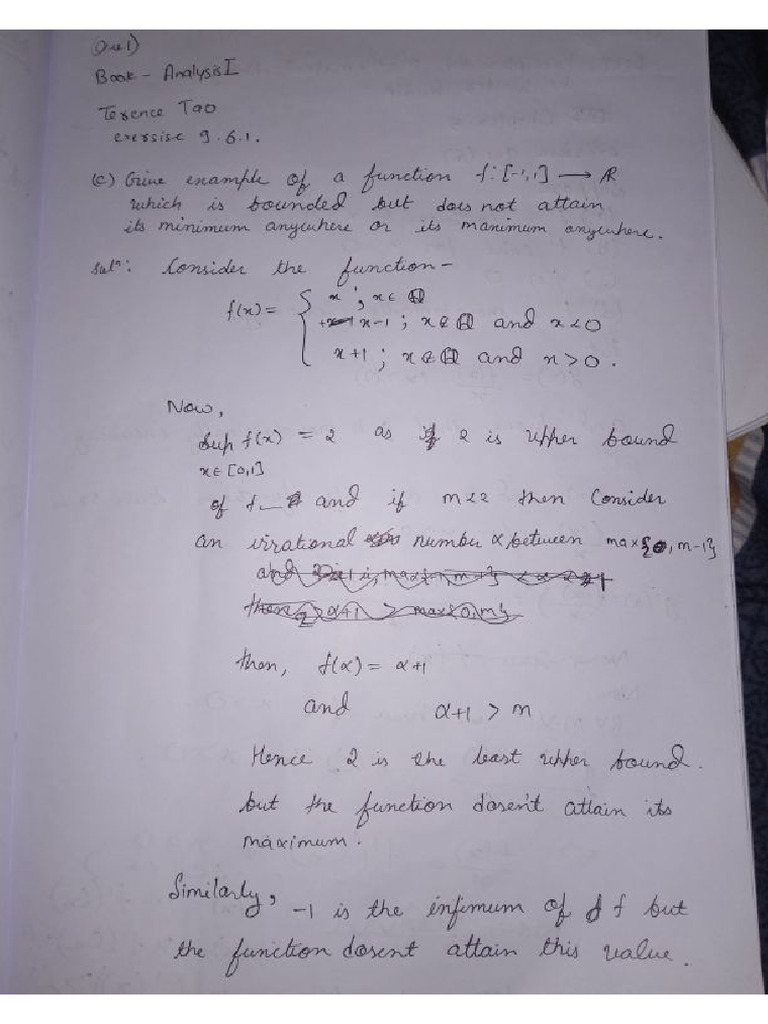 Que 1)
Book - Analysis I
Terence Tao
exersise 9.6.1.
(c) Give example of a function f: [-1,1] → R
which is bounded but does not attain
its minimum anywhere or its maximum anywhere.
Solⁿ: Consider the function-
f(x) = { x ; x ∈ Q
x-1 ; x ∉ Q and x<0
x+1 ; x ∉ Q and x>0.
Now,
Sup f(x) = 2 as 2 is upper bound
x ∈ [0,1]
of f and if m<2 then Consider
an irrational number α between max{0, m-1}
then, f(α) = α+1
and α+1 > m
Hence 2 is the least upper bound.
but the function dosen't attain its
maximum.
Similarly, -1 is the infimum of f but
the function dosent attain this value.